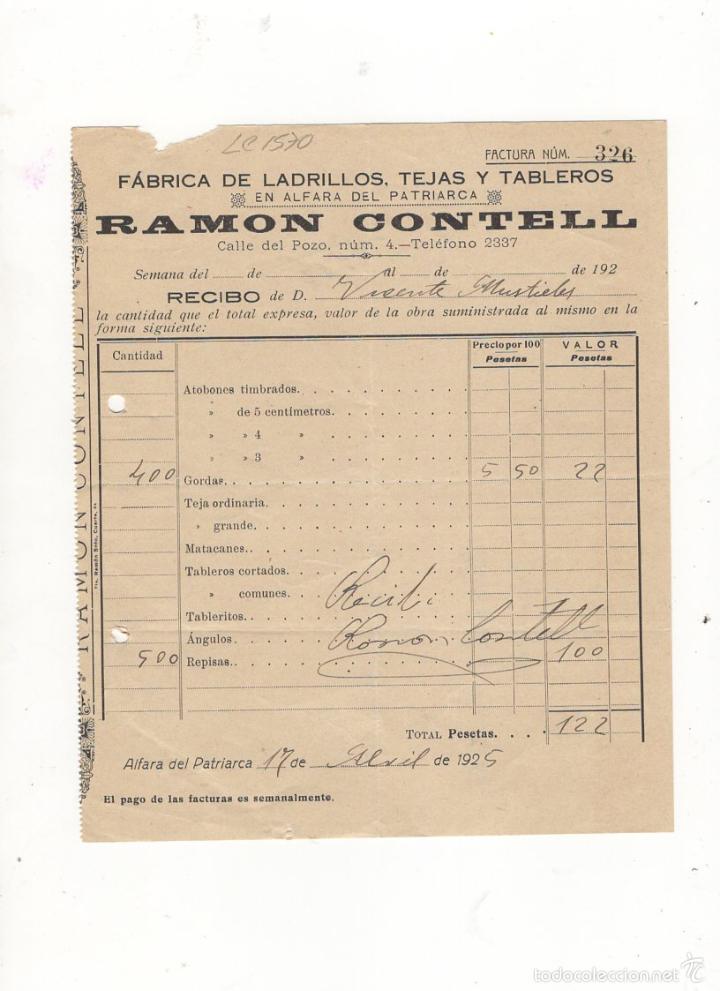 LC 1570
FACTURA NÚM. 326
FÁBRICA DE LADRILLOS, TEJAS Y TABLEROS
EN ALFARA DEL PATRIARCA
RAMON CONTELL
Calle del Pozo, núm. 4.—Teléfono 2337
Semana del de al de de 192
RECIBO de D. Vicente Mustieles
la cantidad que el total expresa, valor de la obra suministrada al mismo en la
forma siguiente:
Cantidad Precio por 100 Pesetas VALOR Pesetas
Atobones timbrados.
» de 5 centímetros.
» » 4 »
» » 3 »
400 Gordas. 5 50 22
Teja ordinaria.
» grande.
Matacanes.
Tableros cortados.
» comunes.
Recibí
Tableritos
Ángulos
Ramon Contell
500 Repisas. 100
TOTAL Pesetas. 122
Alfara del Patriarca 17 de Abril de 1925
El pago de las facturas es semanalmente.
RAMON CONTELL
todocoleccion.net